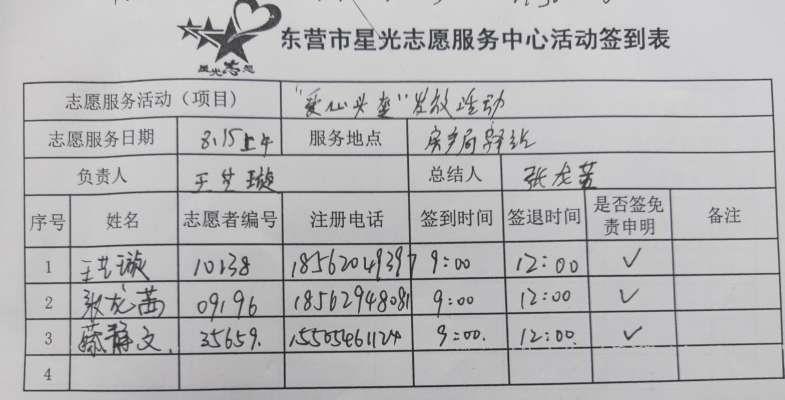 星光志愿
东营市星光志愿服务中心活动签到表
志愿服务活动（项目） "爱心头盔"发放活动
志愿服务日期 8.15上午 服务地点 房产局驿站
负责人 王艺璇 总结人 张龙茜
序号 姓名 志愿者编号 注册电话 签到时间 签退时间 是否签免责申明 备注
1 王艺璇 10138 18562049397 9:00 12:00 ✓
2 张龙茜 09196 18562948081 9:00 12:00 ✓
3 蔡静文. 35659. 15505461124 9:00. 12:00. ✓
4